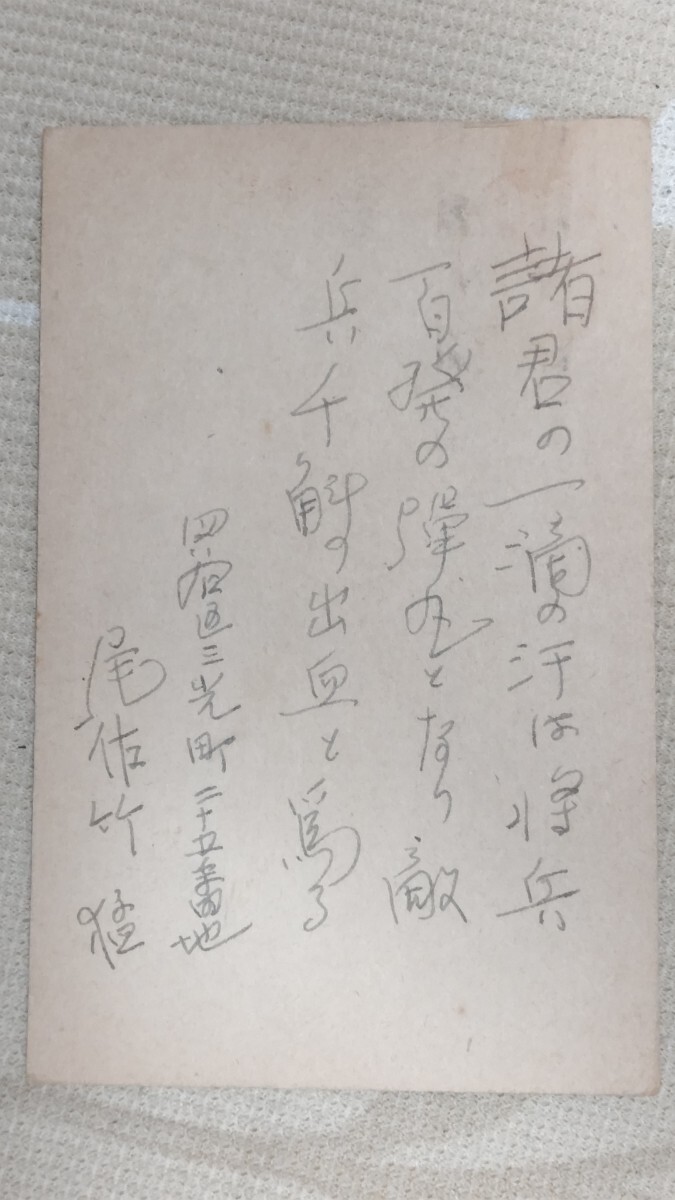 諸君の一滴の汗は将兵
百発の彈丸となり敵
兵千斛の出血と為る
四谷区三光町二十五番地
尾佐竹猛